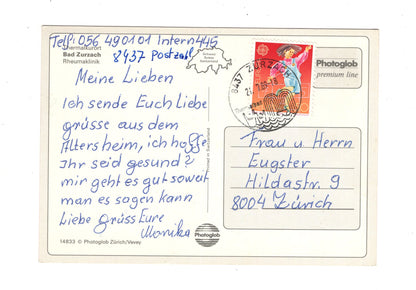 Telf: 056 490101 Intern 445
Thermalkurort
Bad Zurzach
Rheumaklinik
8437 Postzahl
Meine Lieben
Ich sende Euch Liebe
grüsse aus dem
Altersheim, ich hoffe
Ihr seid gesund?
mir geht es gut soweit
man es sagen kann
Liebe Grüss Eure
Monika
14833 © Photoglob Zürich/Vevey
8437 ZURZACH
Photoglob
premium line
Frau u Herrn
Eugster
Hildastr. 9
8004 Zürich
Photoglob